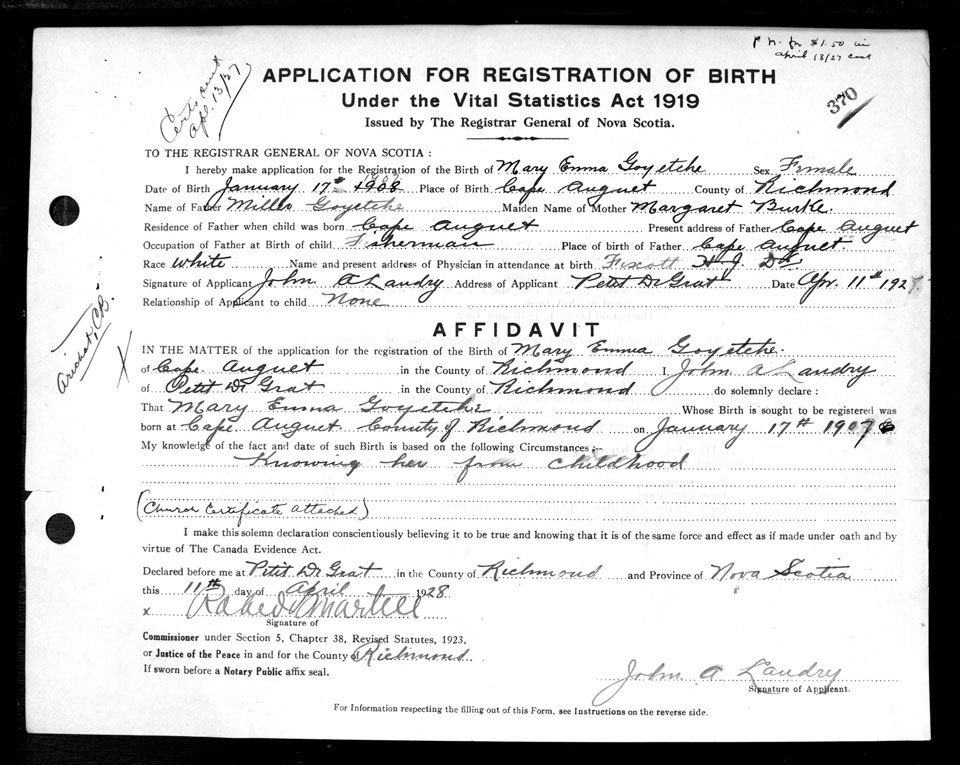 P. N. for $1.50 in
april 13/27 cont
Certs sent
Apl. 13/27
APPLICATION FOR REGISTRATION OF BIRTH
370
Under the Vital Statistics Act 1919
Issued by The Registrar General of Nova Scotia.
TO THE REGISTRAR GENERAL OF NOVA SCOTIA :
I hereby make application for the Registration of the Birth of Mary Emma Goyetche Sex Female
1907
Date of Birth January 17th 1908 Place of Birth Cape Auguet County of Richmond
Name of Father Miller Goyetche Maiden Name of Mother Margaret Burke.
Residence of Father when child was born Cape Auguet Present address of Father Cape Auguet
Occupation of Father at Birth of child Fisherman Place of birth of Father Cape Auguet.
Race White Name and present address of Physician in attendance at birth H. J Dr.
Signature of Applicant John A Landry Address of Applicant Petit De Grat Date Apr. 11th 192
Relationship of Applicant to child None
Arichat, CB.
AFFIDAVIT
X
IN THE MATTER of the application for the registration of the Birth of Mary Emma Goyetche.
of Cape Auguet in the County of Richmond I John A Landry
of Petit De Grat in the County of Richmond do solemnly declare :
That Mary Emma Goyetche Whose Birth is sought to be registered was
born at Cape Auguet County of Richmond on January 17th 1907
My knowledge of the fact and date of such Birth is based on the following Circumstances :--
Knowing her from childhood
(Church Certificate attached)
I make this solemn declaration conscientiously believing it to be true and knowing that it is of the same force and effect as if made under oath and by
virtue of The Canada Evidence Act.
Declared before me at Petit De Grat in the County of Richmond and Province of Nova Scotia
this 11th day of April 1928.
x Martell
Signature of
Commissioner under Section 5, Chapter 38, Revised Statutes, 1923,
or Justice of the Peace in and for the County of Richmond
If sworn before a Notary Public affix seal.
John A Landry
Signature of Applicant.
For Information respecting the filling out of this Form, see Instructions on the reverse side.